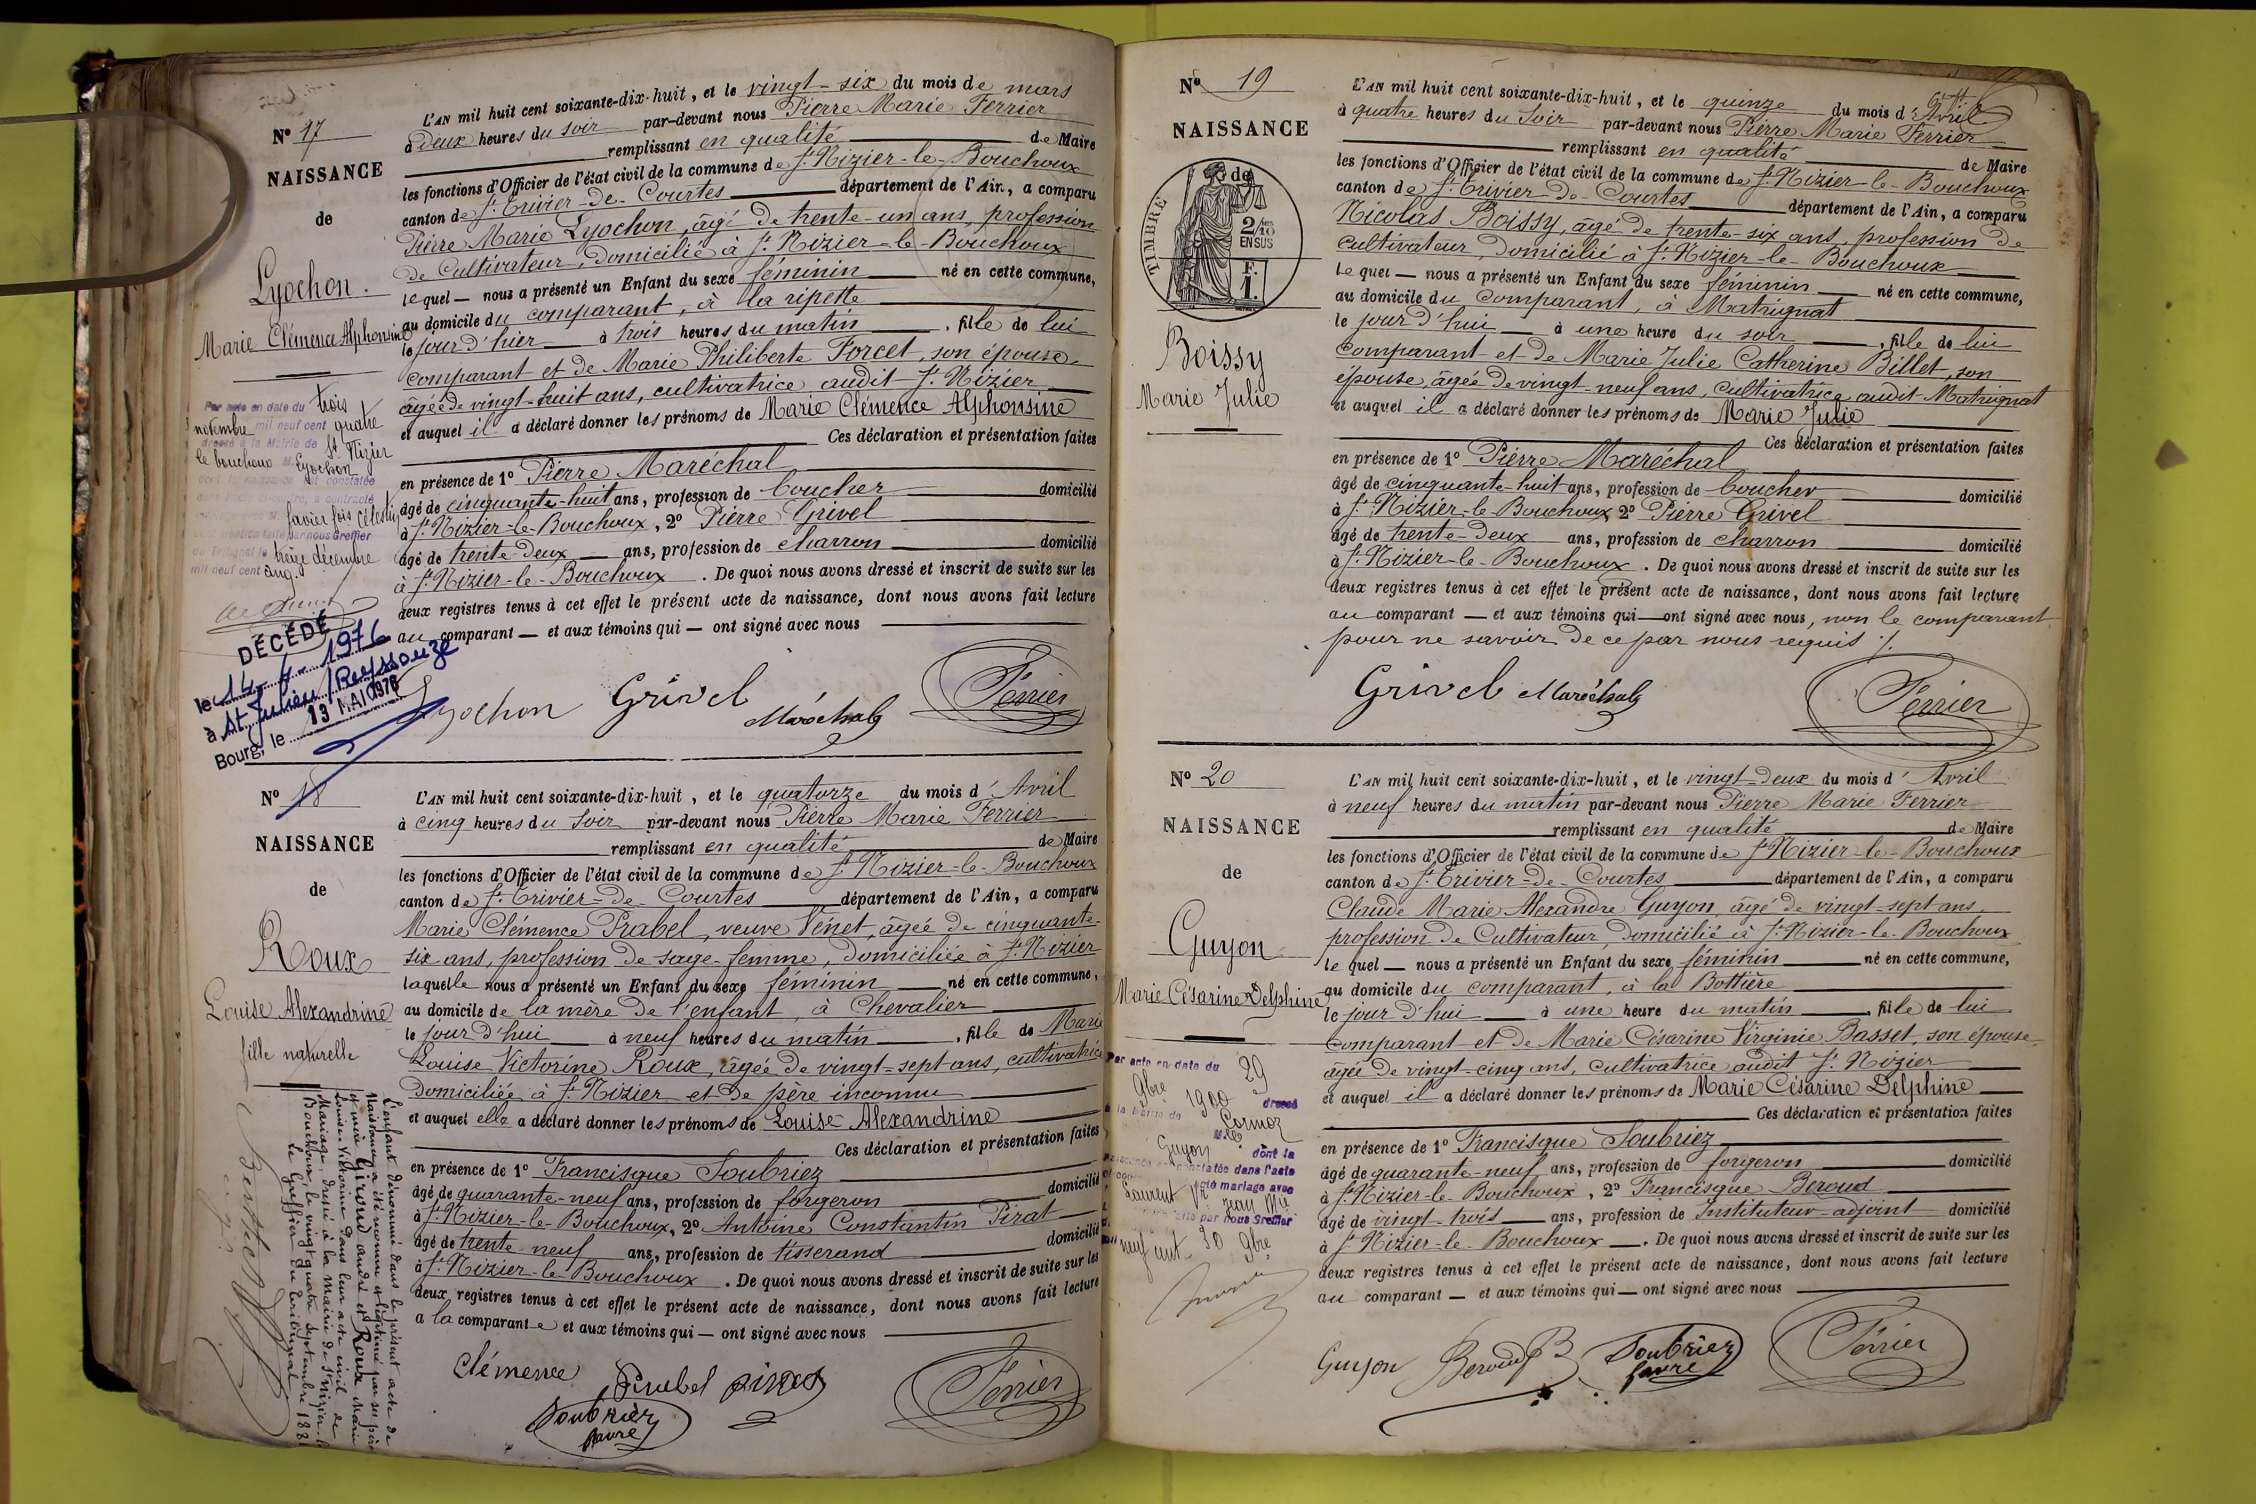 Nº 17
NAISSANCE
de
Lyochon.
Marie Clémence Alphonsine
Par acte en date du trois
novembre mil neuf cent quatre
dressé à la Mairie de St Nizier
le bouchoux M. Lyochon
dont la naissance est constatée
a contracté
favier fois Célestin
par nous Greffier
treize décembre
mil neuf cent cinq.
DÉCÉDÉ
le 14-4-1976
à St Julien/Reyssouze
Bourg, le 13 MAI 1976
L'AN mil huit cent soixante-dix-huit, et le vingt-six du mois de mars
à deux heures du soir par-devant nous Pierre Marie Ferrier
remplissant en qualité de Maire
les fonctions d'Officier de l'état civil de la commune de St. Nizier-le-Bouchoux
canton de St. Trivier-de-Courtes département de l'Ain, a comparu
Pierre Marie Lyochon, âgé de trente-un ans, profession
de Cultivateur, domicilié à St. Nizier-le-Bouchoux
lequel — nous a présenté un Enfant du sexe féminin né en cette commune,
au domicile du comparant, à la ripette
le jour d'hier à trois heures du matin, fille de lui
comparant et de Marie Philiberte Forcet, son épouse,
âgée de vingt-huit ans, cultivatrice audit St. Nizier
et auquel il a déclaré donner les prénoms de Marie Clémence Alphonsine
Ces déclaration et présentation faites
en présence de 1º Pierre Maréchal
âgé de cinquante-huit ans, profession de boucher domicilié
à St. Nizier-le-Bouchoux, 2º Pierre Grivel
âgé de trente-deux ans, profession de charron domicilié
à St. Nizier-le-Bouchoux. De quoi nous avons dressé et inscrit de suite sur les
deux registres tenus à cet effet le présent acte de naissance, dont nous avons fait lecture
au comparant — et aux témoins qui — ont signé avec nous
Lyochon Grivel Maréchal Ferrier
Nº 18
NAISSANCE
de
Roux
Louise Alexandrine
fille naturelle
L'enfant dénommé dans le présent acte de
Naissance a été reconnu et légitimé par ses père
et mère Girond André et Roux Marie
Louise Victorine dans leur acte civil de
Mariage dressé à la Mairie de St Nizier-le
Bouchoux, le vingt quatre Septembre 188
Le Greffier du Tribunal
L'AN mil huit cent soixante-dix-huit, et le quatorze du mois d'Avril
à cinq heures du soir par-devant nous Pierre Marie Ferrier
remplissant en qualité de Maire
les fonctions d'Officier de l'état civil de la commune de St. Nizier-le-Bouchoux
canton de St. Trivier-de-Courtes département de l'Ain, a comparu
Marie Clémence Prabel, veuve Vénet, âgée de cinquante-
six ans, profession de sage-femme, domiciliée à St. Nizier
laquelle nous a présenté un Enfant du sexe féminin né en cette commune,
au domicile de la mère de l'enfant, à Chevalier
le jour d'hui à neuf heures du matin, fille de Marie
Louise Victorine Roux, âgée de vingt-sept ans, cultivatrice
domiciliée à St. Nizier et de père inconnu
et auquel elle a déclaré donner les prénoms de Louise Alexandrine
Ces déclaration et présentation faites
en présence de 1º Francisque Soubriez
âgé de quarante-neuf ans, profession de forgeron domicilié
à St. Nizier-le-Bouchoux, 2º Antoine Constantin Pirat
âgé de trente-neuf ans, profession de tisserand domicilié
à St. Nizier-le-Bouchoux. De quoi nous avons dressé et inscrit de suite sur les
deux registres tenus à cet effet le présent acte de naissance, dont nous avons fait lecture
a la comparante et aux témoins qui — ont signé avec nous
Clémence Prabel Pirat Ferrier
Soubriez
favre
Nº 19
NAISSANCE
de
TIMBRE
2/10
EN SUS
F.
1.
Boissy
Marie Julie
L'AN mil huit cent soixante-dix-huit, et le quinze du mois d'Avril
à quatre heures du soir par-devant nous Pierre Marie Ferrier
remplissant en qualité de Maire
les fonctions d'Officier de l'état civil de la commune de St. Nizier-le-Bouchoux
canton de St. Trivier-de-Courtes département de l'Ain, a comparu
Nicolas Boissy, âgé de trente-six ans, profession de
cultivateur, domicilié à St. Nizier-le-Bouchoux
lequel — nous a présenté un Enfant du sexe féminin né en cette commune,
au domicile du comparant, à Matrignat
le jour d'hui à une heure du soir, fille de lui
comparant et de Marie Julie Catherine Billet, son
épouse, âgée de vingt-neuf ans, cultivatrice audit Matrignat
et auquel il a déclaré donner les prénoms de Marie Julie
Ces déclaration et présentation faites
en présence de 1º Pierre Maréchal
âgé de cinquante-huit ans, profession de boucher domicilié
à St. Nizier-le-Bouchoux, 2º Pierre Grivel
âgé de trente-deux ans, profession de charron domicilié
à St. Nizier-le-Bouchoux. De quoi nous avons dressé et inscrit de suite sur les
deux registres tenus à cet effet le présent acte de naissance, dont nous avons fait lecture
au comparant — et aux témoins qui — ont signé avec nous, non le comparant
pour ne savoir de ce par nous requis ./.
Grivel Maréchal Ferrier
Nº 20
NAISSANCE
de
Guyon
Marie Césarine Delphine
Par acte en date du 29
9bre 1900 dressé
à la Mairie de Cormoz
Mlle Guyon dont la
naissance est constatée dans l'acte
a contracté mariage avec
Laurent Jean Mie
par nous Greffier
neuf cent 30 9bre
L'AN mil huit cent soixante-dix-huit, et le vingt-deux du mois d'Avril
à neuf heures du matin par-devant nous Pierre Marie Ferrier
remplissant en qualité de Maire
les fonctions d'Officier de l'état civil de la commune de St. Nizier-le-Bouchoux
canton de St. Trivier-de-Courtes département de l'Ain, a comparu
Claude Marie Alexandre Guyon, âgé de vingt-sept ans,
profession de Cultivateur, domicilié à St. Nizier-le-Bouchoux
lequel — nous a présenté un Enfant du sexe féminin né en cette commune,
au domicile du comparant, à la Bottière
le jour d'hui à une heure du matin, fille de lui
comparant et de Marie Césarine Virginie Basset, son épouse,
âgée de vingt-cinq ans, cultivatrice audit St. Nizier
et auquel il a déclaré donner les prénoms de Marie Césarine Delphine
Ces déclaration et présentation faites
en présence de 1º Francisque Soubriez
âgé de quarante-neuf ans, profession de forgeron domicilié
à St. Nizier-le-Bouchoux, 2º Francisque Beroud
âgé de vingt-trois ans, profession de Instituteur-adjoint domicilié
à St. Nizier-le-Bouchoux. De quoi nous avons dressé et inscrit de suite sur les
deux registres tenus à cet effet le présent acte de naissance, dont nous avons fait lecture
au comparant — et aux témoins qui — ont signé avec nous
Guyon Beroud Soubriez Ferrier
favre